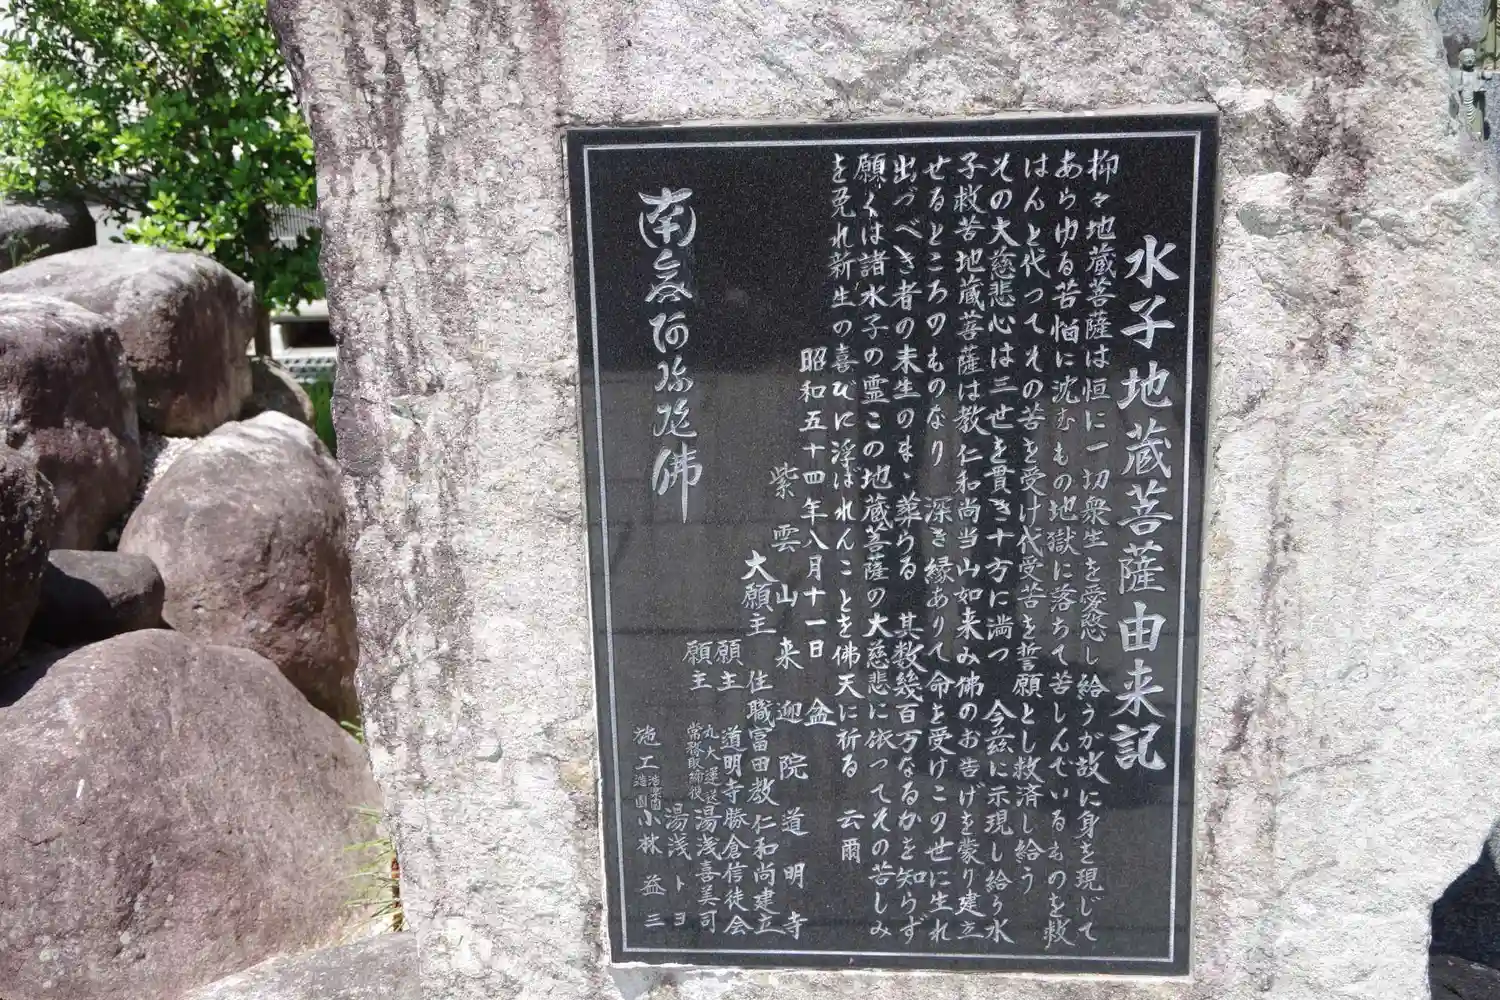 水子地蔵菩薩由来記
抑々地蔵菩薩は恒に一切衆生を愛愍し給うが故に身を現じて
あらゆる苦悩に沈むもの地獄に落ちて苦しんでいるものを救
はんと代ってその苦を受け代受苦を誓願とし救済し給う
その大慈悲心は三世を貫き十方に満つ 今茲に示現し給う水
子救苦地蔵菩薩は教仁和尚当山如来み佛のお告げを蒙り建立
せるところのものなり 深き縁ありて命を受けこの世に生れ
出づべき者の未生のまゝ葬らる 其数幾百万なるかを知らず
願くは諸水子の霊この地蔵菩薩の大慈悲に依ってその苦しみ
を免れ新生の喜びに浮ばれんことを佛天に祈る 云爾
昭和五十四年八月十一日 盆
紫雲山来迎院道明寺
大願主 住職冨田教仁和尚建立
願主 道明寺勝倉信徒会
願主 丸大運送常務取締役 湯浅喜美司
湯浅トヨ
施工 造園 小林益三
南無阿弥陀佛